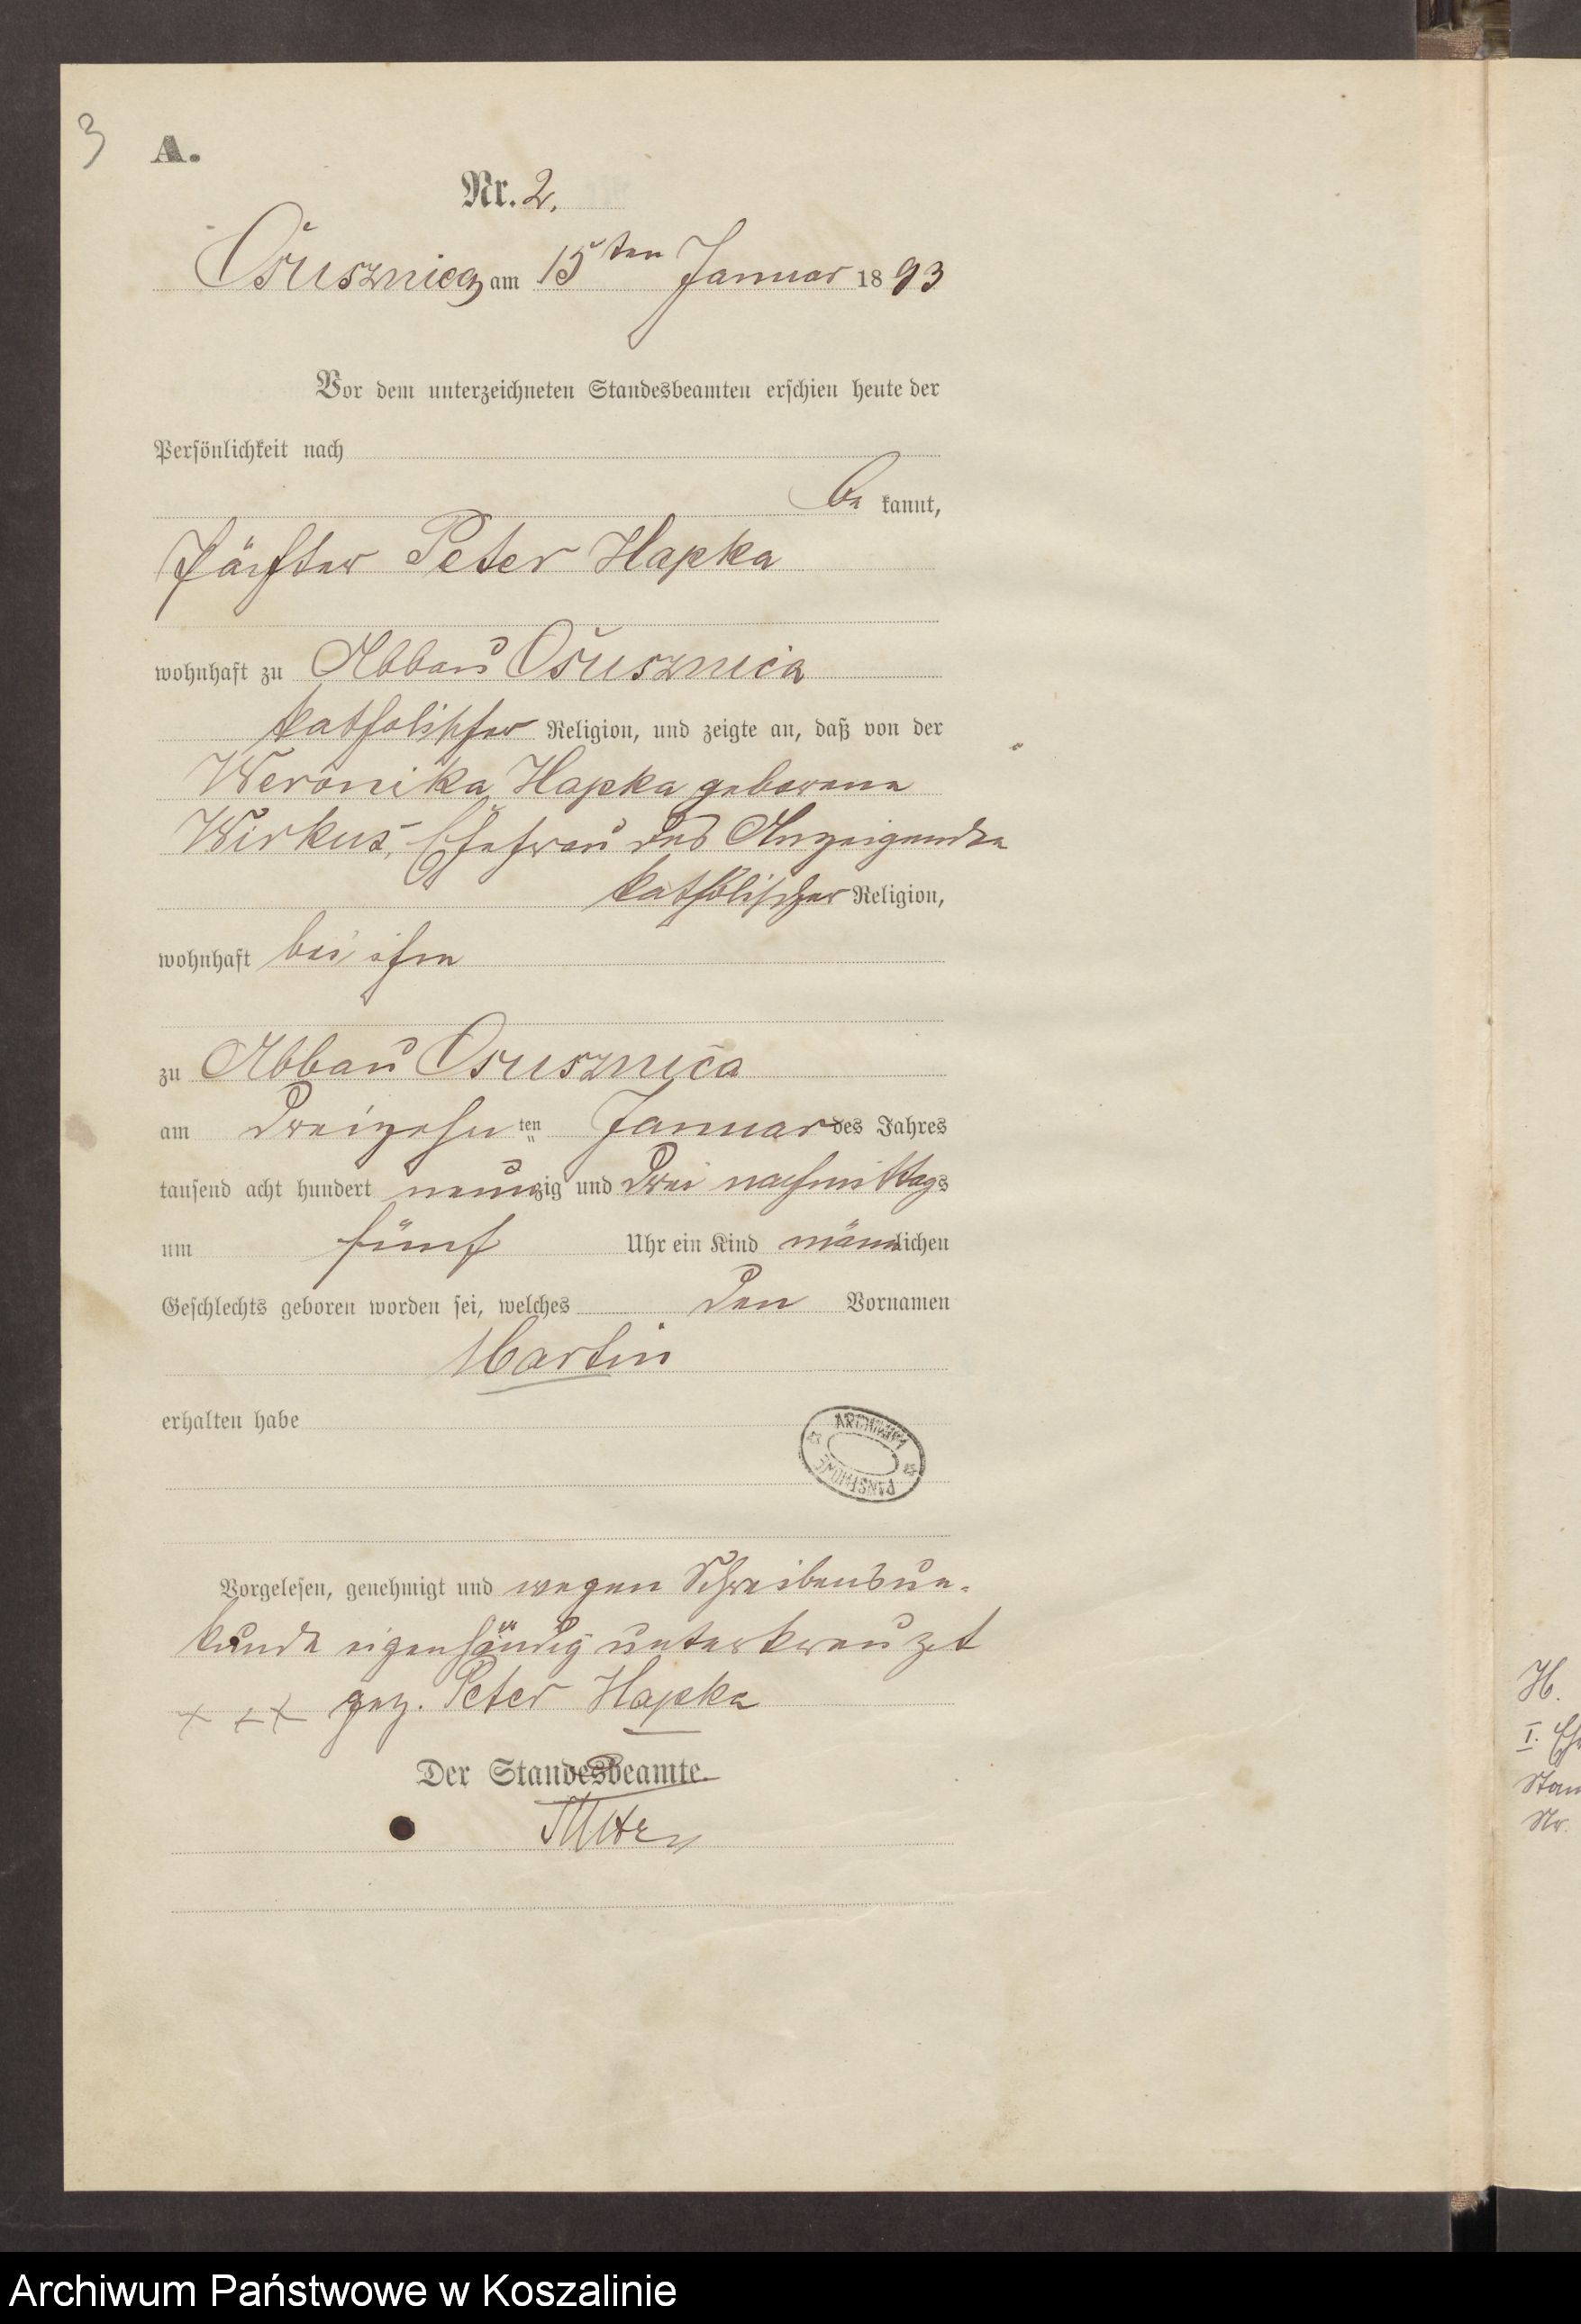 3
A.
Nr. 2.
Osusznica am 15ten Januar 1893
Vor dem unterzeichneten Standesbeamten erschien heute der
Persönlichkeit nach
be kannt,
Pächter Peter Hapka
wohnhaft zu Abbau Osusznica
katholischer Religion, und zeigte an, daß von der
Weronika Hapka geborene
Wirkus, Ehefrau des Anzeigenden
katholischer Religion,
wohnhaft bei ihm
zu Abbau Osusznica
am dreizehn ten Januar des Jahres
tausend acht hundert neunzig und drei nachmittags
um fünf Uhr ein Kind männlichen
Geschlechts geboren worden sei, welches den Vornamen
Martin
erhalten habe
ARCHIWUM
PAŃSTWOWE
Vorgelesen, genehmigt und wegen Schreibensun-
kunde eigenhändig unterkreuzt
+ + + gez. Peter Hapka
Der Standesbeamte.
H.
I.
Nr.
Archiwum Państwowe w Koszalinie